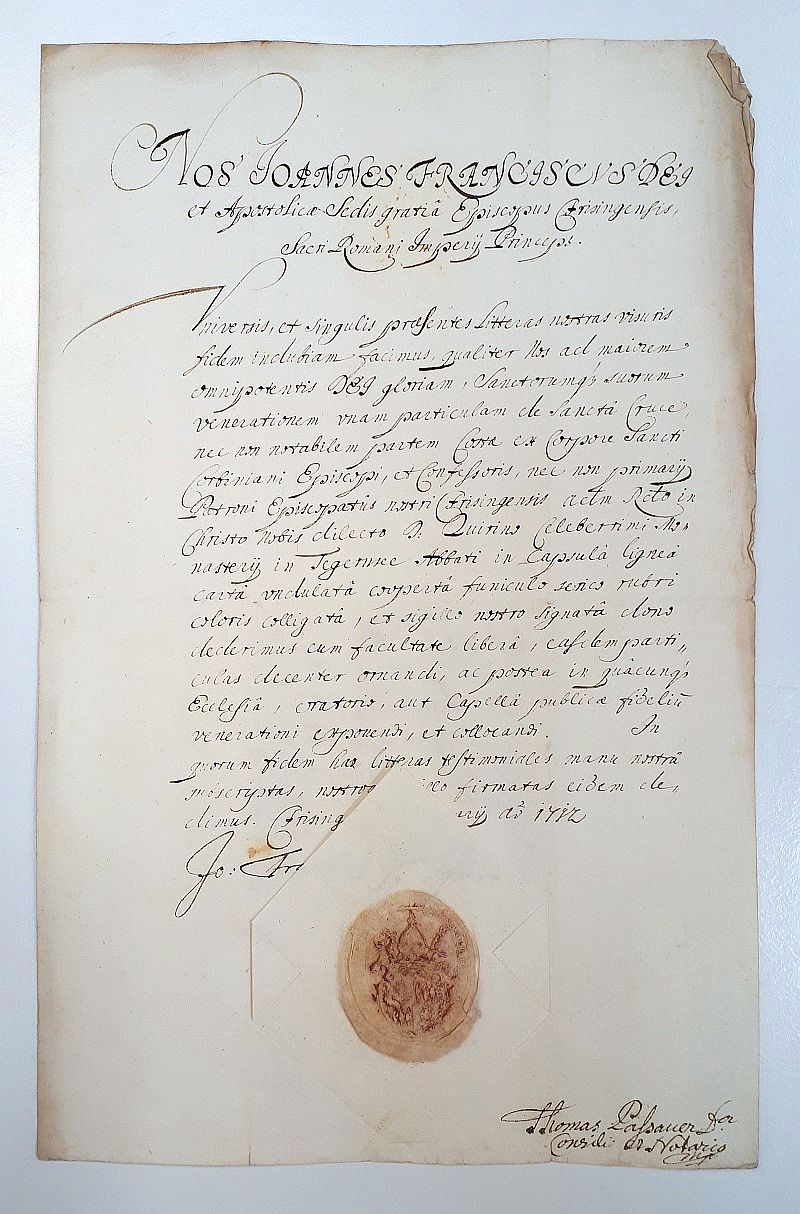 NOS IOANNES FRANCISCVS DEI
et Apostolicæ Sedis gratiâ Episcopus Frisingensis,
Sacri Romani Imperij Princeps.
Vniversis, et singulis præsentes Litteras nostras visuris
fidem indubiam facimus, qualiter Nos ad maiorem
omnipotentis DEI gloriam, Sanctorumq; suorum
venerationem vnam particulam de Sanctâ Cruce,
nec non notabilem partem Costæ ex Corpore Sancti
Corbiniani Episcopi, et Confessoris, nec non primarij
Patroni Episcopatûs nostri Frisingensis adm Rdo in
Christo Nobis dilecto D. Quirino Celeberrimi Mo-
nasterij in Tegernsee Abbati in Capsulâ ligneâ
cartâ vndulatâ coopertâ funiculo serico rubri
coloris colligatâ, et sigillo nostro signatâ dono
dederimus cum facultate liberâ, easdem parti„
culas decenter ornandi, ac postea in quâcunq;
Ecclesiâ, oratorio, aut Capellâ publicæ fideliū
venerationi exponendi, et collocandi. In
quorum fidem has litteras testimoniales manu nostrâ
firmatas eidem de„
dimus. Frising ao 1712
Jo:
Thomas Passauer
Consil: et Notarius